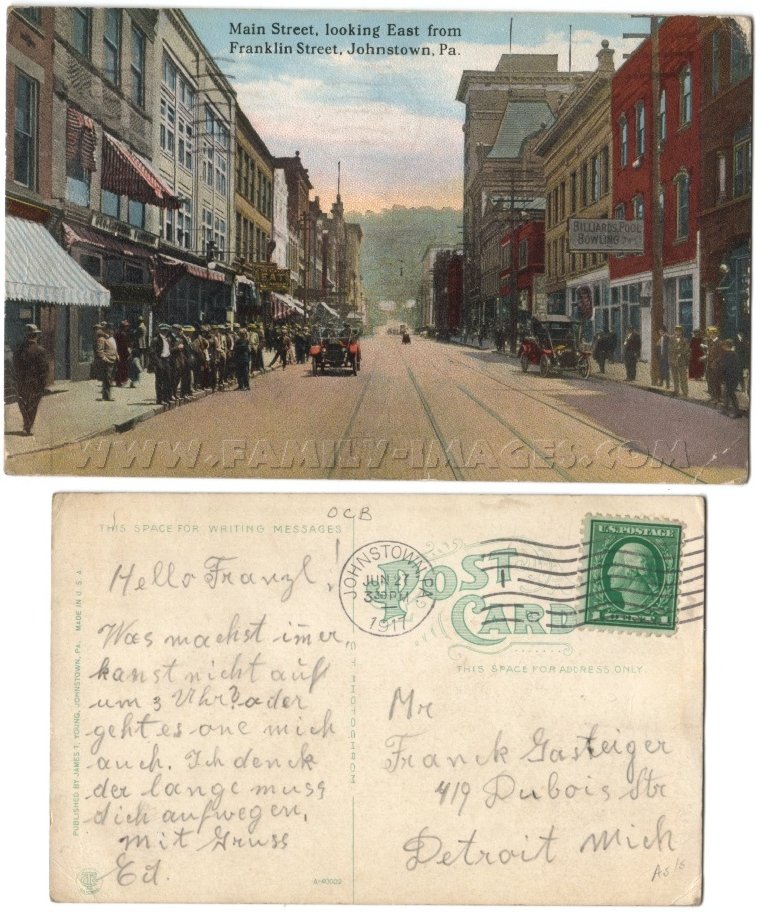 Main Street, looking East from
Franklin Street, Johnstown, Pa.
BILLIARDS, POOL
BOWLING
WWW.FAMILY-IMAGES.COM
OCB
THIS SPACE FOR WRITING MESSAGES
Hello Franzl!
Was machst imer,
kanst nicht auf
um 3 Uhr? oder
geht es one mich
auch. Ich denck
der lange muss
dich aufwegen,
mit Gruss
Ed.
PUBLISHED BY JAMES T. YOUNG, JOHNSTOWN, PA. MADE IN U.S.A
A-40002
JOHNSTOWN, PA.
JUN 27
330PM
1917
1
U.S. POSTAGE
POST
CARD
THIS SPACE FOR ADDRESS ONLY.
Mr
Franck Gasteiger
419 Dubois Str
Detroit Mich